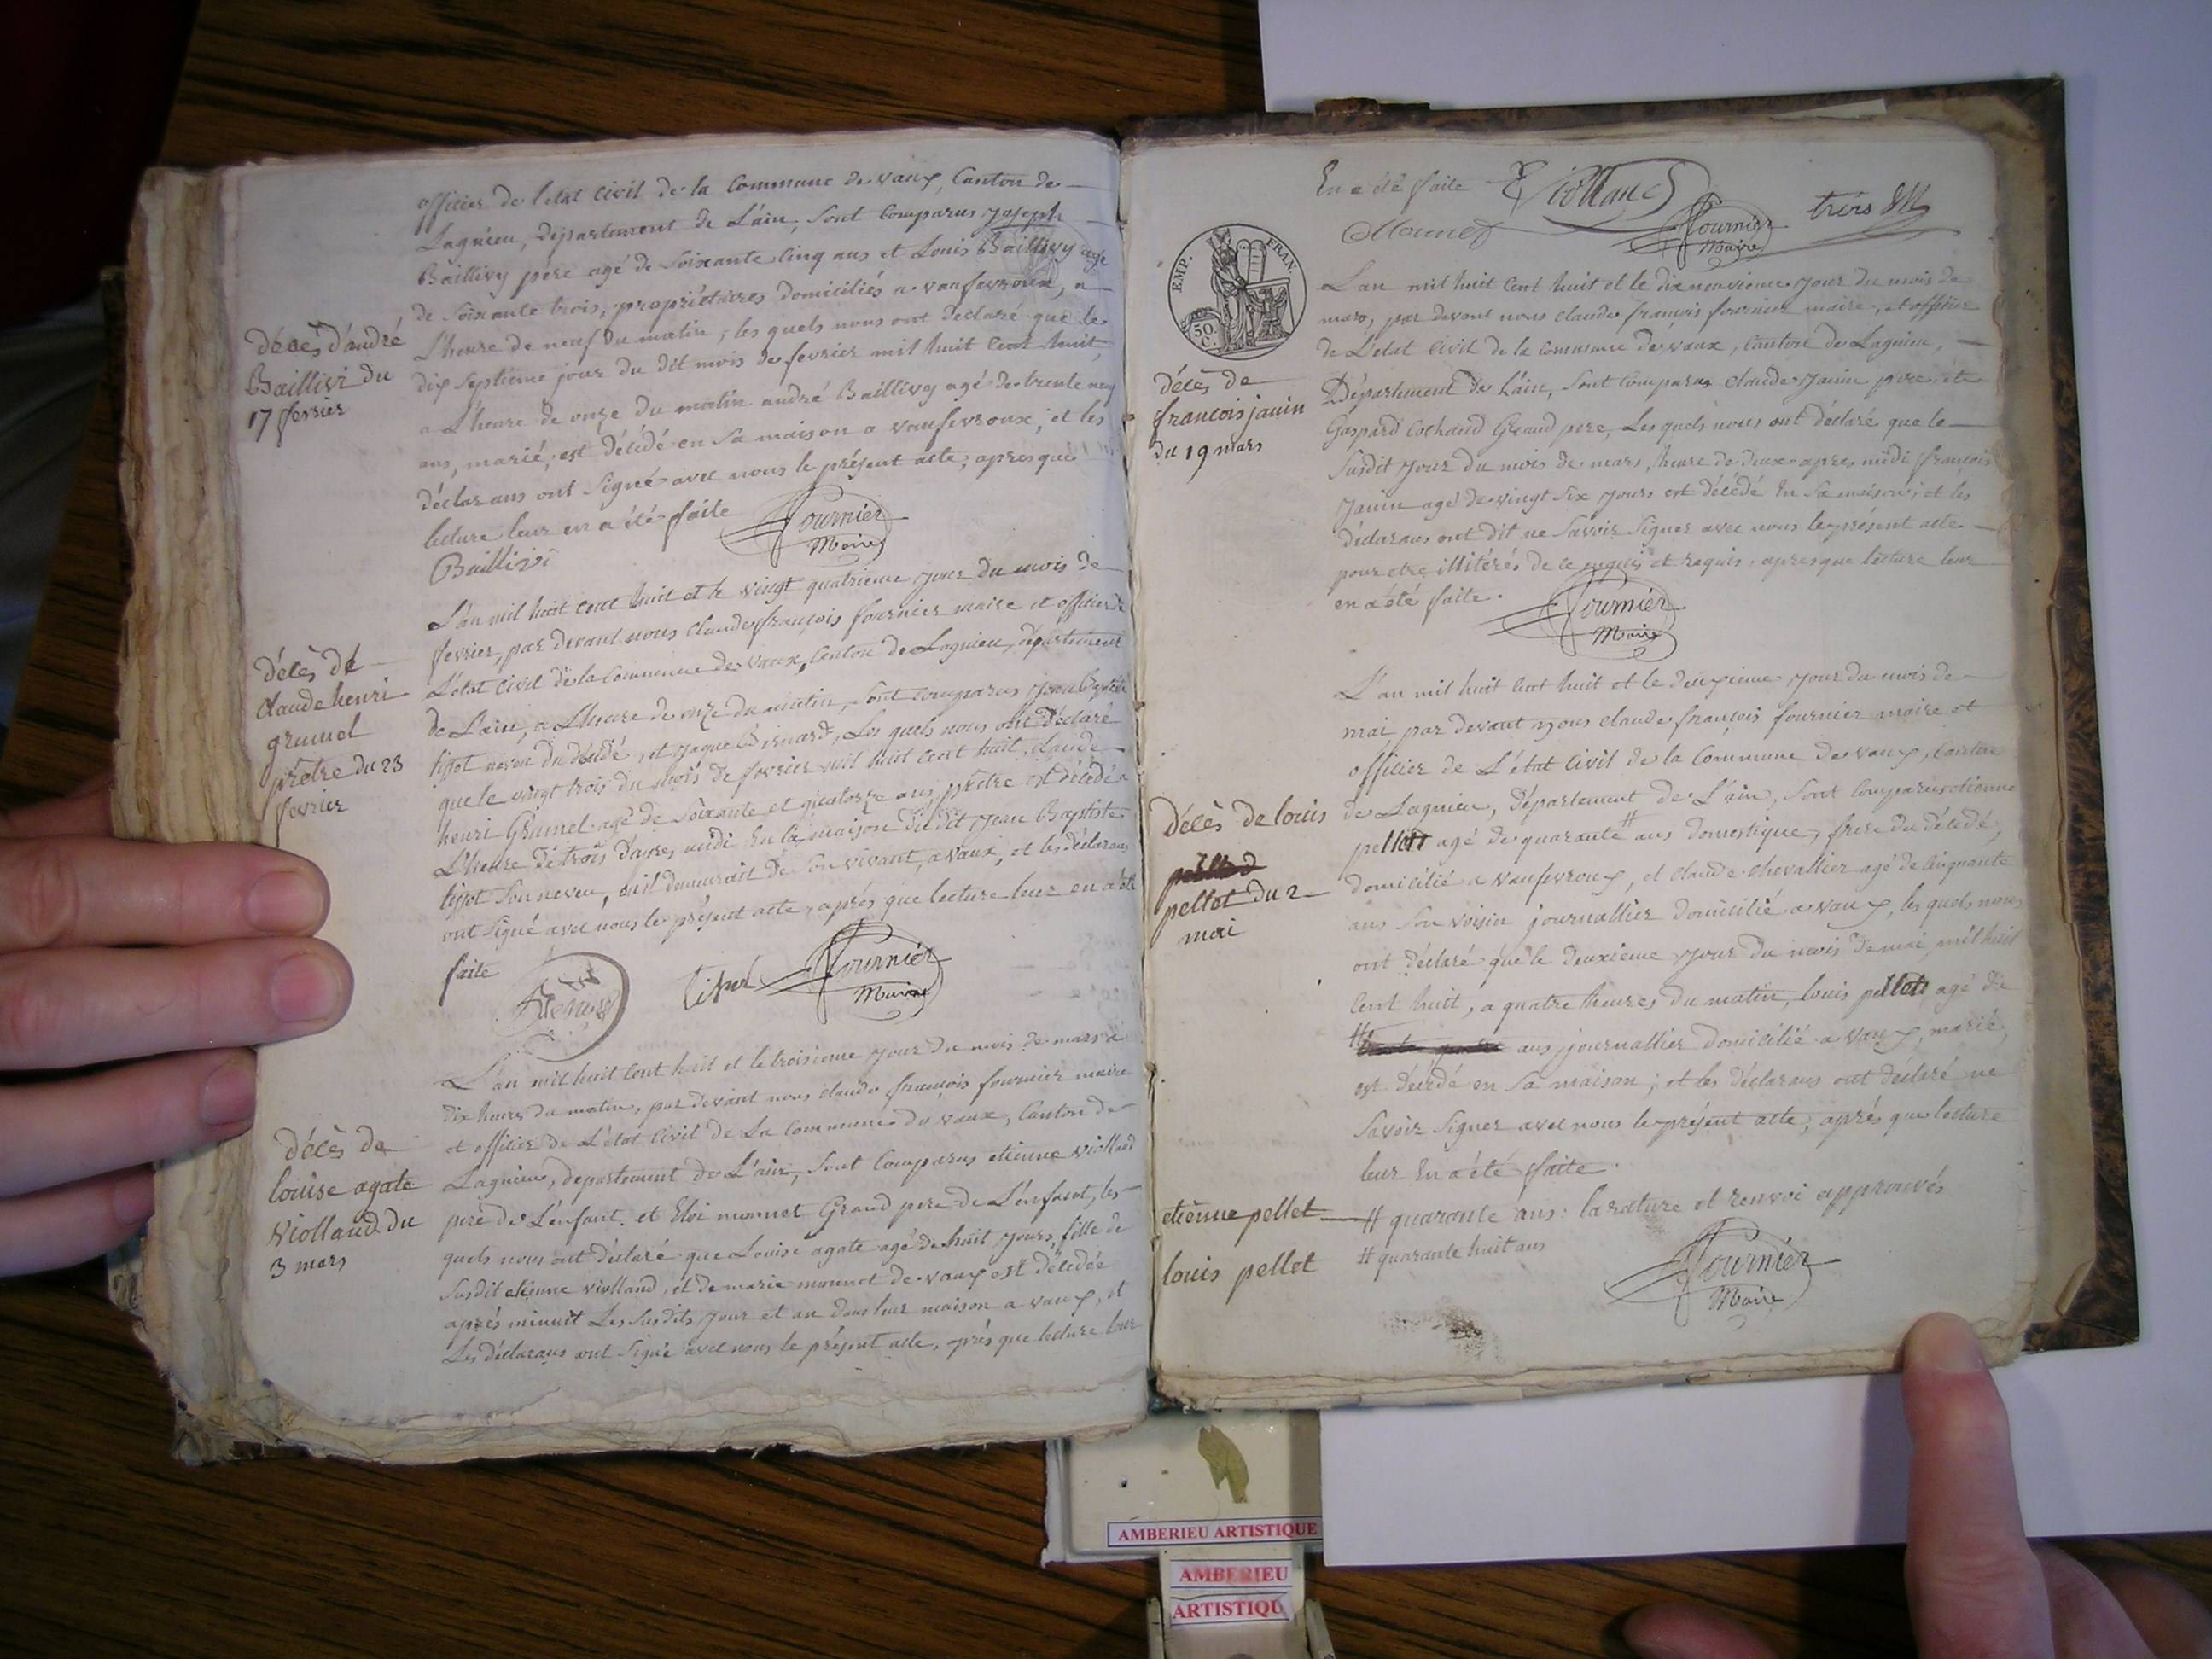 officier de letat civil de la Commune de vaux, Canton de
Lagnieu, département de L'ain, sont Comparus joseph
Baillivy père agé de soixante cinq ans et Louis Baillivy agé
de soixante trois, propriétaires domiciliés a vaufevroux, a
L'heure de neuf du matin, les quels nous ont déclaré que le
dix septième jour du dit mois de fevrier mil huit Cent huit,
a L'heure de onze du matin andré Baillivy agé de trente neuf
ans, marié, est décédé en sa maison a vaufevroux; et les
déclarans ont signé avec nous le présent acte, apres que
lecture leur en a été faite
Fournier
Maire
Baillivi
décès d'andré
Baillivi du
17 fevrier
L'an mil huit cent huit et le vingt quatrieme jour du mois de
fevrier, par devant nous claude françois fournier maire et officier de
L'état civil de la Commune de vaux, Canton de Lagnieu, département
de L'ain, a L'heure de onze du matin, sont comparus jean Baptiste
tissot neveu du décédé, et jaque Bernard, Les quels nous ont déclaré
que le vingt trois du mois de fevrier mil huit cent huit, claude
henri Grumel agé de soixante et quatorze ans, prêtre est décédé a
L'heure de trois d'apres midi En la maison du dit jean Baptiste
tissot son neveu, ou il demeurait de son vivant, a vaux, et les déclarans
ont signé avec nous le présent acte, aprés que lecture leur en a été
faite
Fournier
Maire
décès de
claude henri
grumel
prêtre du 23
fevrier
L'an mil huit Cent huit et le troisieme jour du mois de mars a
dix heures du matin, par devant nous claude françois fournier maire
et officier de L'état Civil de La Commune de vaux, Canton de
Lagnieu, departement de L'ain, sont Comparus etienne violland
pere de L'enfant, et Eloi monnet Grand pere de L'enfant, les
quels nous ont déclaré que Louise agate agé de huit jours, fille de
susdit etienne violland, et de marie monnet de vaux est décédée
aprés minuit Les susdits jour et an dans leur maison a vaux, et
Les déclarans ont signé avec nous le présent acte, aprés que lecture leur
décès de
louise agate
violland du
3 mars
En a été faite
E Viollan
Monnet
Fournier
Maire
EMP. FRAN.
50. C.
L'an mil huit Cent huit et le dix neuvieme jour du mois de
mars, par devant nous claude françois fournier maire, et officier
de L'etat Civil de la Commune de vaux, Canton de Lagnieu,
Département de L'ain, sont Comparus claude janin pere, et
Gaspard Cochaud Grand pere, Les quels nous ont déclaré que le
susdit jour du mois de mars, heure de deux apres midi françois
janin agé de vingt six jours est décédé En sa maison; et les
déclarans ont dit ne savoir signer avec nous le présent acte
pour etre illitérés de ce enquis et requis, apres que lecture leur
en a été faite.
Fournier
Maire
décès de
francois janin
du 19 mars
L'an mil huit Cent huit et le deuxieme jour du mois de
mai par devant nous claude françois fournier maire et
officier de L'état Civil de la Commune de vaux, Canton
de Lagnieu, Département de L'ain, sont Comparus etienne
pellot agé de quarante # ans domestique, frere du décédé,
domicilié a vaufevroux, et claude chevallier agé de Cinquante
ans son voisin journallier domicilié a vaux, les quels nous
ont déclaré que le deuxieme jour du mois de mai mil huit
Cent huit, a quatre heures du matin, louis pellot agé de
# ans journallier domicilié a vaux, marié,
est décédé en sa maison; et les déclarans ont déclaré ne
savoir signer avec nous le présent acte, aprés que lecture
leur En a été faite.
# quarante ans: la rature et renvoi approuvés
# quarante huit ans
Fournier
Maire
décès de louis
pellot du 2
mai
etienne pellot
louis pellot
AMBERIEU ARTISTIQUE
AMBERIEU
ARTISTIQU